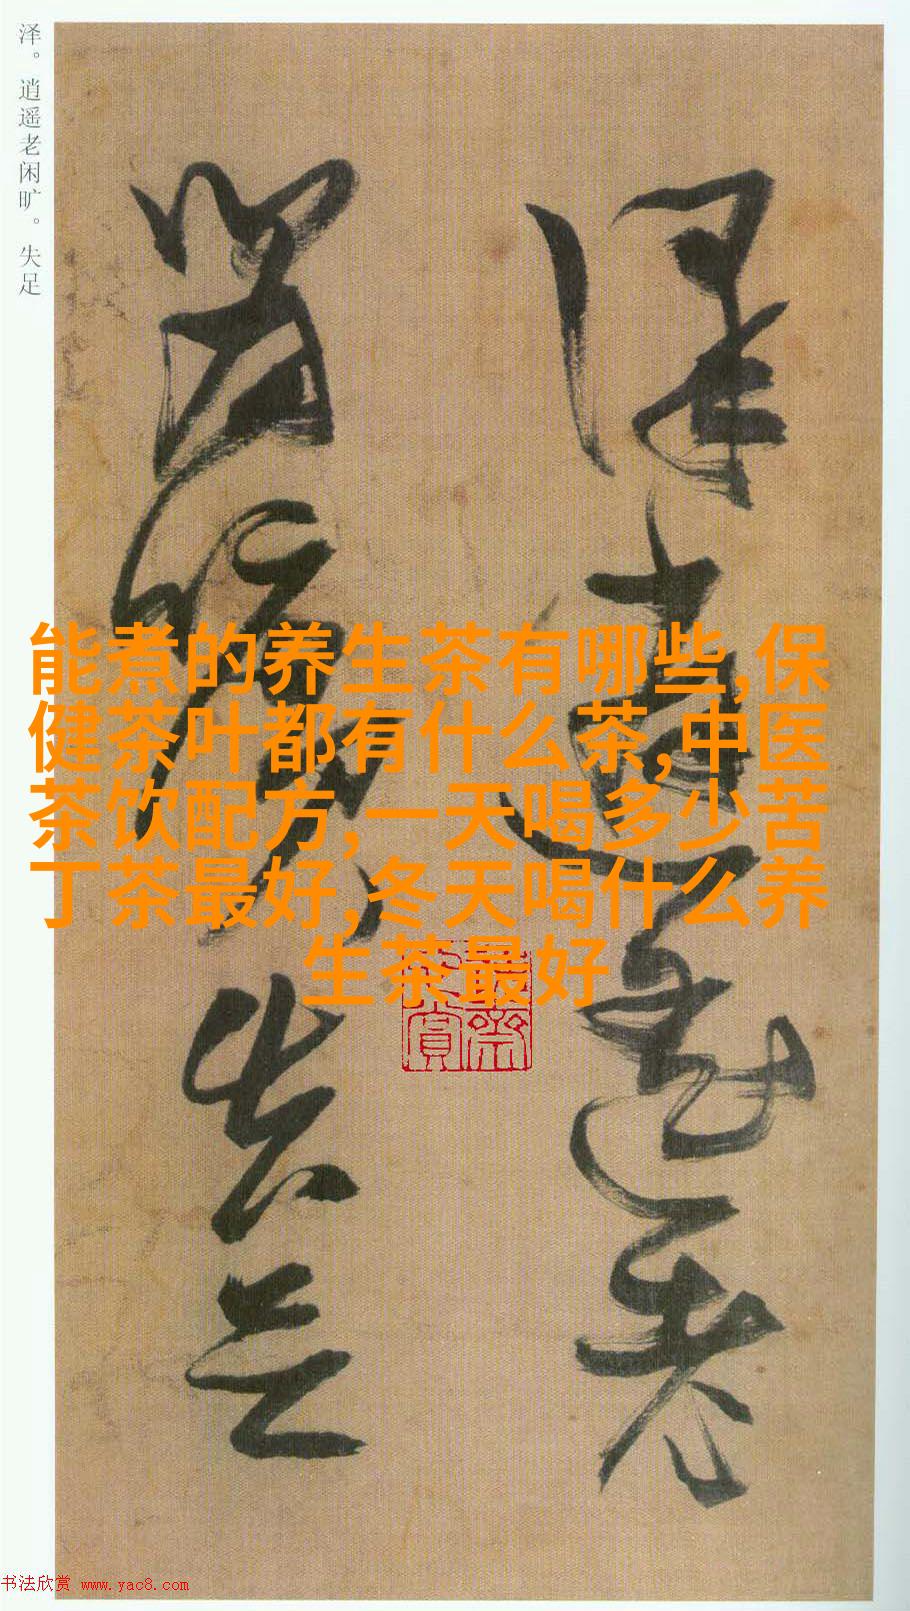 泽。逍遥老闲旷。失足
泽逍遥老
闲旷失足
能煮的养生茶有哪些,保
健茶叶都有什么茶,中医
茶饮配方,一天喝多少苦
丁茶最好,冬天喝什么养
生茶最好
书法欣赏 www.yac8.com